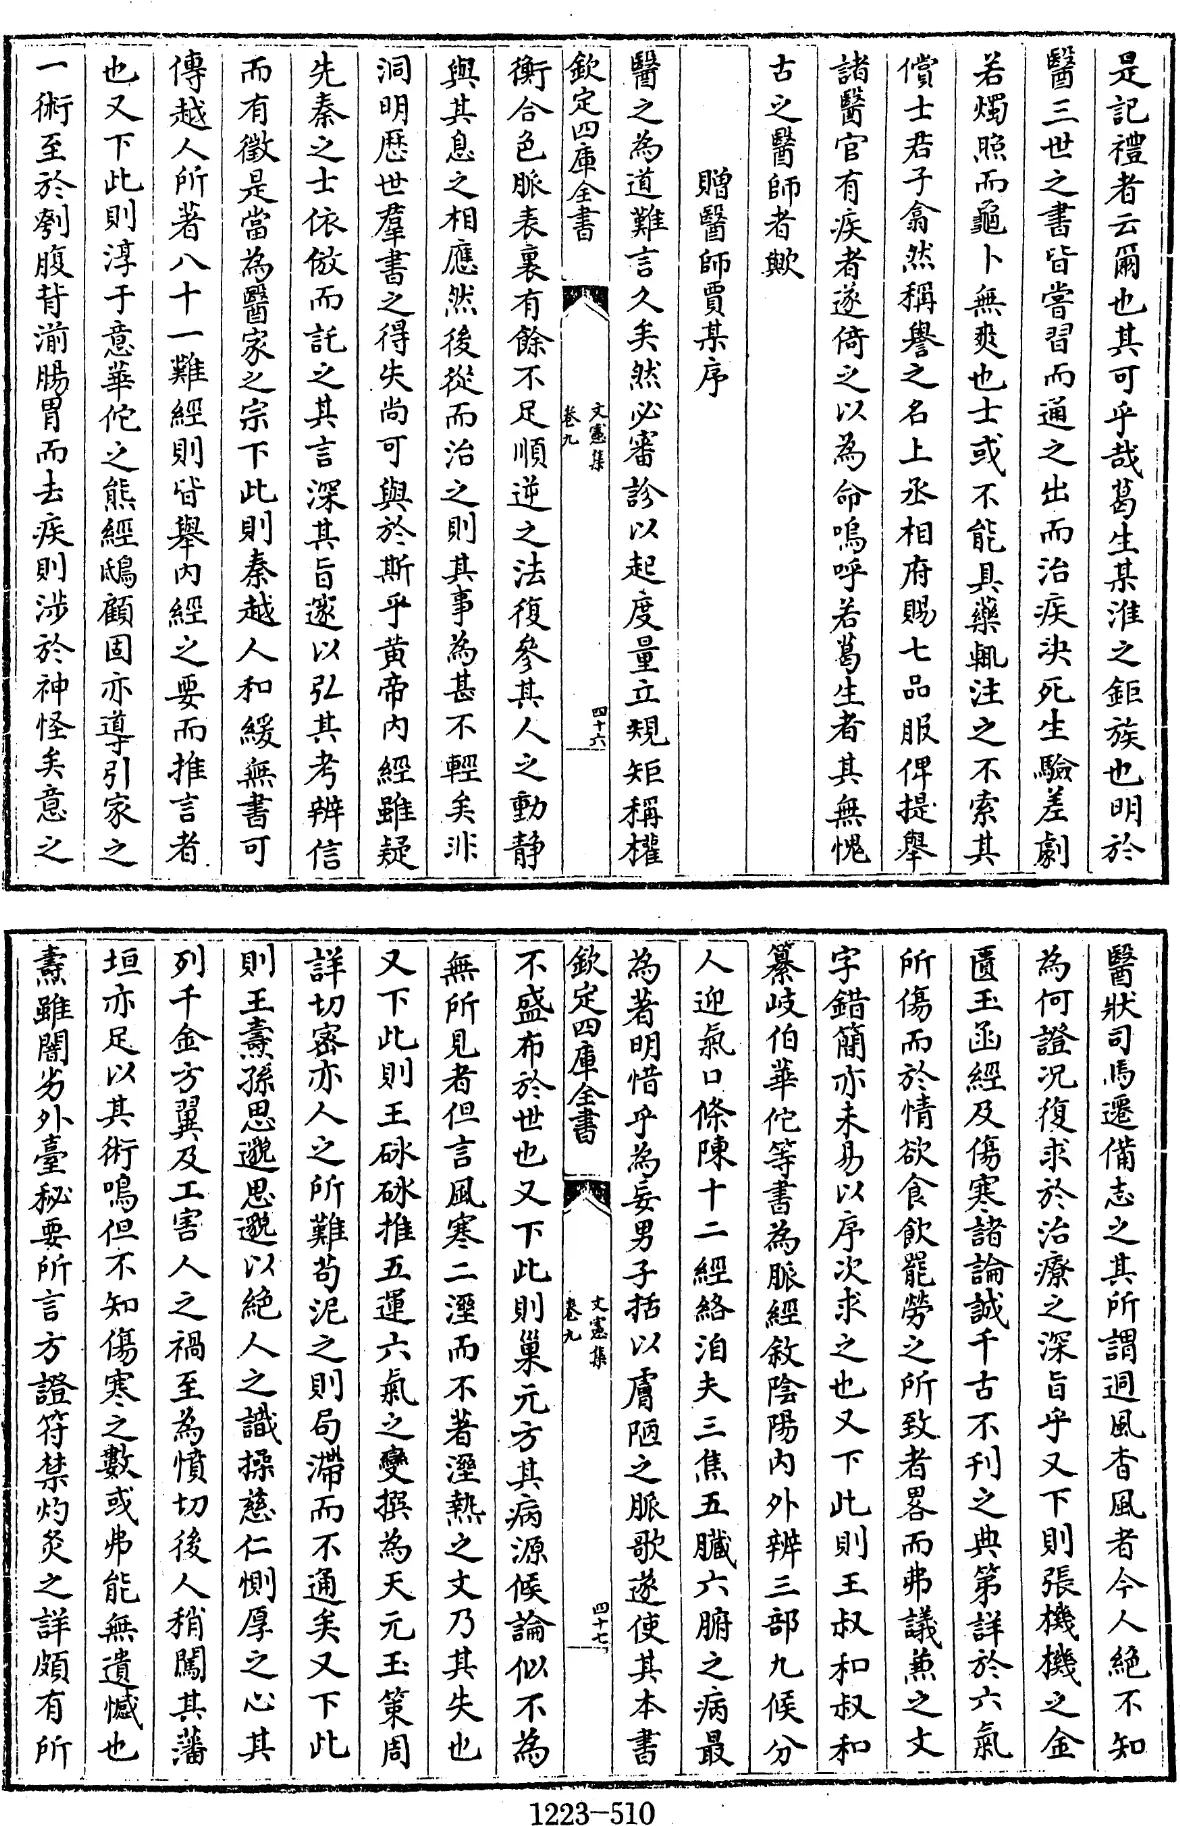 是記禮者云爾也其可乎哉葛生某淮之鉅族也明於
醫三世之書皆嘗習而通之出而治疾決死生驗差劇
若燭照而龜卜無爽也士或不能具藥輒注之不索其
償士君子翕然稱譽之名上丞相府賜七品服俾提舉
諸醫官有疾者遂倚之以為命嗚呼若葛生者其無愧
古之醫師者歟
贈醫師賈某序
醫之為道難言久矣然必審診以起度量立規矩稱權
欽定四庫全書
文憲集
卷九
四十六
衡合色脈表裏有餘不足順逆之法復參其人之動静
與其息之相應然後從而治之則其事為甚不輕矣非
洞明歷世羣書之得失尚可與於斯乎黄帝内經雖疑
先秦之士依倣而託之其言深其旨邃以弘其考辨信
而有徵是當為醫家之宗下此則秦越人和緩無書可
傳越人所著八十一難經則皆舉内經之要而推言者
也又下此則淳于意華佗之熊經鴟顧固亦導引家之
一術至於刳腹背湔腸胃而去疾則涉於神怪矣意之
醫狀司馬遷備志之其所謂迵風沓風者今人絶不知
為何證況復求於治療之深旨乎又下則張機機之金
匱玉函經及傷寒諸論誠千古不刊之典第詳於六氣
所傷而於情欲食飲罷勞之所致者畧而弗議兼之文
字錯簡亦未易以序次求之也又下此則王叔和叔和
纂岐伯華佗等書為脈經敘陰陽内外辨三部九候分
人迎氣口條陳十二經絡洎夫三焦五臟六腑之病最
為著明惜乎為妄男子括以膚陋之脈歌遂使其本書
欽定四庫全書
文憲集
卷九
四十七
不盛布於世也又下此則巢元方其病源候論似不為
無所見者但言風寒二溼而不著溼熱之文乃其失也
又下此則王砅砅推五運六氣之變撰為天元玉策周
詳切密亦人之所難苟泥之則局滯而不通矣又下此
則王燾孫思邈思邈以絶人之識操慈仁惻厚之心其
列千金方翼及工害人之禍至為憤切後人稍闖其藩
垣亦足以其術鳴但不知傷寒之數或弗能無遺憾也
燾雖闇劣外臺秘要所言方證符禁灼灸之詳頗有所
1223-510